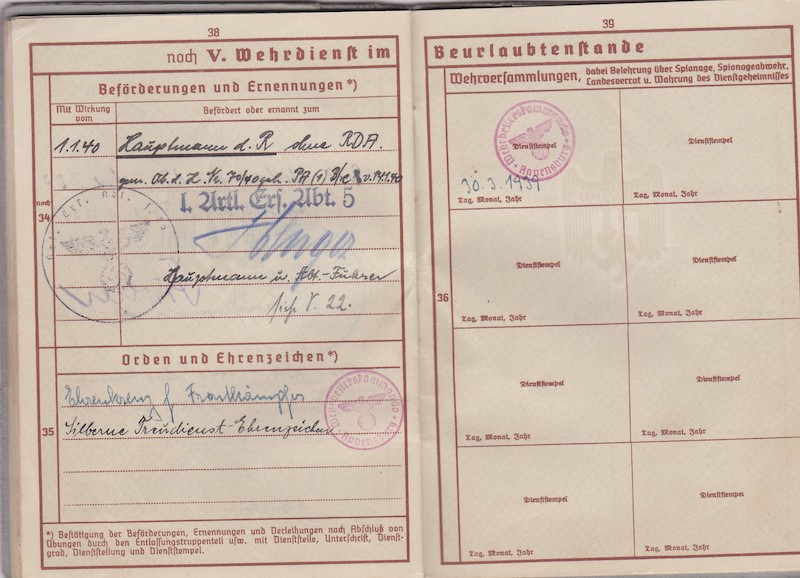 38
noch V. Wehrdienst im
Beförderungen und Ernennungen *)
Mit Wirkung vom
Befördert oder ernannt zum
1.1.40 Hauptmann d. R ohne RDA.
noch 34
I. Artl. Ers. Abt. 5
Hauptmann u. Abt.-Führer
V. 22.
Orden und Ehrenzeichen *)
35
Ehrenkreuz f. Frontkämpfer
Silberne Treudienst-Ehrenzeichen
Wehrbezirkskommando Ravensburg
*) Bestätigung der Beförderungen, Ernennungen und Verleihungen nach Abschluß von
Übungen durch den Entlassungstruppenteil usw. mit Dienststelle, Unterschrift, Dienst-
grad, Dienststellung und Dienststempel.
39
Beurlaubtenstande
Wehrversammlungen, dabei Belehrung über Spionage, Spionageabwehr,
Landesverrat u. Wahrung des Dienstgeheimnisses
36
Wehrbezirkskommando Ravensburg
Dienststempel
30.3.1939
Tag, Monat, Jahr
Dienststempel
Tag, Monat, Jahr
Dienststempel
Tag, Monat, Jahr
Dienststempel
Tag, Monat, Jahr
Dienststempel
Tag, Monat, Jahr
Dienststempel
Tag, Monat, Jahr
Dienststempel
Tag, Monat, Jahr
Dienststempel
Tag, Monat, Jahr